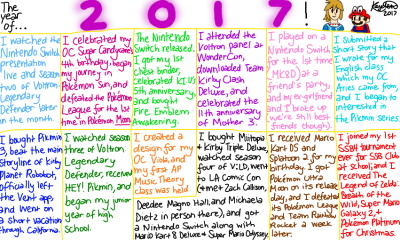 The year of...
2017!
KeyBlano 2017
I watched the
Nintendo Switch
presentation
live and season
two of Voltron
Legendary
Defender later
in the month.
I celebrated my
OC Sugar Candycane's
4th birthday, began
my journey in
Pokémon Sun, and
defeated the Pokémon
League for the 1st
time in Pokémon Moon.
The Nintendo
Switch released.
I got my 1st
chest binder,
celebrated K.I.U's
5th anniversary,
and bought
Fire Emblem
Awakening.
I attended the
Voltron panel at
WonderCon,
downloaded Team
Kirby Clash
Deluxe, and
celebrated the
11th anniversary
of Mother 3.
I played on a
Nintendo Switch
for the 1st time
(MK8D) at a
friend's party,
and my boyfriend
and I broke up
(we're still best
friends though).
I submitted a
short story that
I wrote for my
English class
which my OC
Aries came from,
and I began to
interested in
the Pikmin series.
I bought Pikmin
3, beat the main
storyline of Kirby
Planet Robobot,
officially left
the Vent app,
and went on
a short vacation
through California.
I watched season
three of Voltron
Legendary
Defender, received
HEY! Pikmin, and
began my junior
year of high
school.
I created a
design for my
OC Viola, and
my first AP
Music Theory
class was held
I bought Miitopia
+ Kirby Triple Deluxe,
watched season
four of V:LD, went
to LA Comic Con
(+ met Zach Callison,
Deedee Magno Hall, and Michaela
Dietz in person there), and got
a Nintendo Switch along with
Mario Kart 8 Deluxe + Super Mario Odyssey.
I received Mario
Kart DS and
Splatoon 2 for my
birthday. I got
Pokémon Ultra
Moon on its release
day, and I defeated
its Pokémon League
and Team Rainbow
Rocket a week
later.
I joined my 1st
SSB4 tournament
ever for SSB Club
at school, and I
received The
Legend of Zelda:
Breath of the
Wild, Super Mario
Galaxy 2, +
Pokémon Platinum
for Christmas.